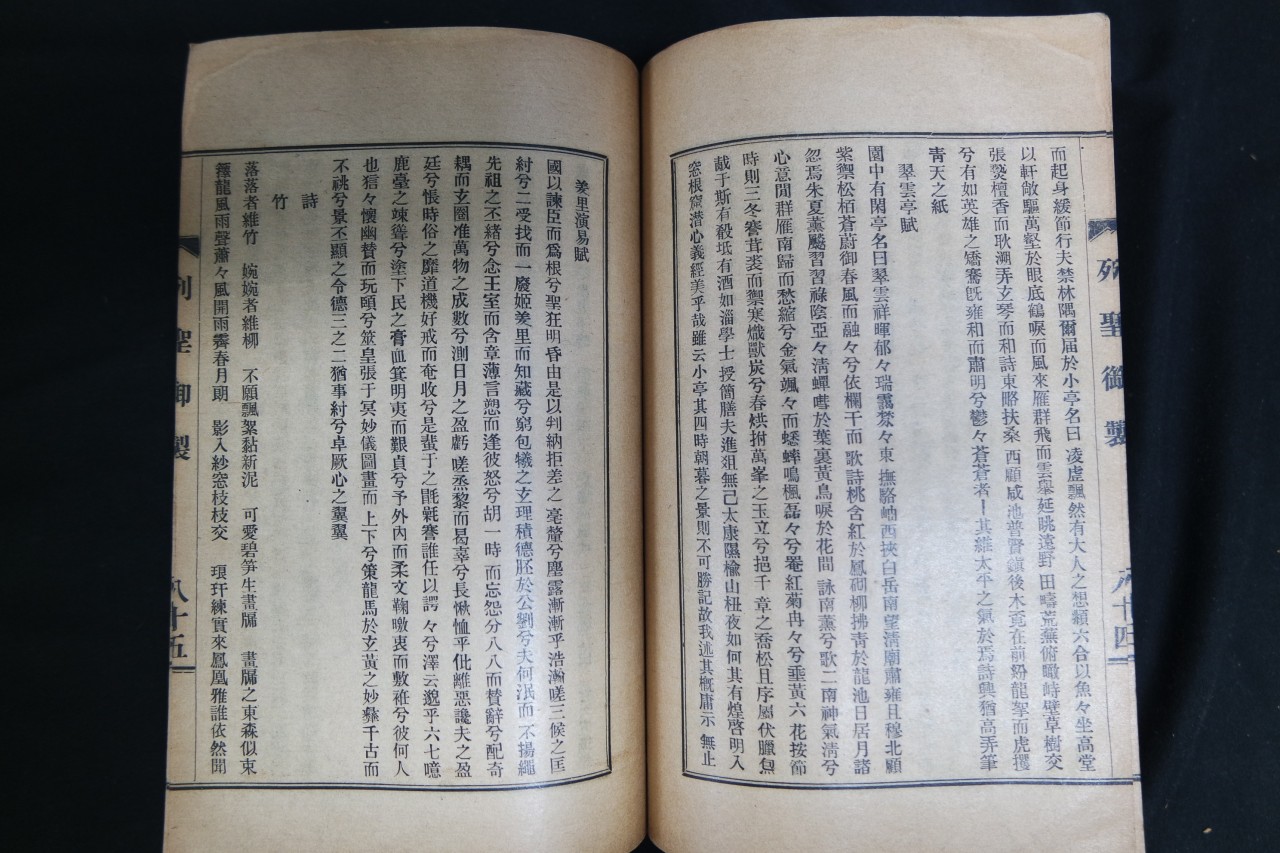 而起身緩節行夫禁林隅爾届於小亭名曰 凌虛飄然有大人之想類六合以魚々坐高堂
以軒敞驅萬壑於眼底鶴唳而風來雁群飛而雲擧延眺遠野 田疇荒蕪俯瞰峙壁草樹交
張爇檀香而耿溯弄玄琴而和詩東略扶桑 西顧咸池普賢鎭後木覓在前紛龍挐而虎攫
兮有如英雄之矯騫旣雍和而肅明兮鬱々蒼蒼者ー其維太平之氣於焉詩興猶高弄筆
靑天之紙
翠雲亭賦
園中有閑亭名曰翠雲祥暉郁々瑞靄棼々東 撫駱岫西挾白岳南望淸廟肅雍且穆北顧
紫禦松栢蒼蔚御春風而融々兮依欄干而 歌詩桃含紅於鳳砌柳拂靑於龍池日居月諸
忽焉朱夏薰飈習習祿陰亞々淸蟬嘒於葉裏黃鳥唳於花間 詠南薰兮歌二南神氣淸兮
心意閒群雁南歸而愁縮兮金氣颯々而蟋蟀鳴楓磊々兮罨紅菊冉々兮垂黃六 花按節
時則三冬搴茸裘而禦寒熾獸炭兮春烘拊萬峯之玉立兮挹千 章之喬松且序屬伏臘炰
胾于斯有殽坻有酒如淄學士 授簡膳夫進俎無己太康隰楡山杻夜如何其有煌啓明入
窓根窺潛心義經美乎哉雖云小亭其四時朝暮之景則不可勝記故我述其槪庸示 無止
列聖御製
八十四
羑里演易賦
國以諫臣而爲根兮聖狂明昏由是以判納拒差之 毫釐兮塵露漸漸乎浩瀚嗟三候之匡
紂兮二受找而一廢姬羑里而知藏兮窮包犧之玄理積德胚於公劉兮夫何泯而 不揚繩
先祖之丕緖兮念王室而含章薄言愬而逢彼怒兮胡一時 而忘怨分八八而賛辭兮配奇
耦而玄圈准萬物之成數兮測日月之盈虧 嗟烝黎而曷辜兮長愀恤乎仳離惡讒夫之盈
廷兮悵時俗之靡道機好戒而奄收兮是蜚于之毷氉謇誰任以諤 々兮澤云邈乎六七噫
鹿臺之竦聳兮塗下民之膏血箕明夷而艱貞兮予外內而柔文鞠暾衷而敷雜兮彼何人
也狺々懷幽賛而玩頤兮筮皇張于冥妙儀圖畫而 上下兮策龍馬於玄黃之妙彜千古而
不祧兮景不顯之令德三之二猶事紂兮卓厥心之翼翼
詩
竹
落落者維竹 婉婉者維柳 不願飄絮黏新泥 可愛碧笋生畫牖 畫牖之東森似束
籜龍風雨聲蕭々風開雨霽春月朗 影入紗窓枝枝交 琅玕練實來鳳凰雅誰依然聞
列聖御製
八十五